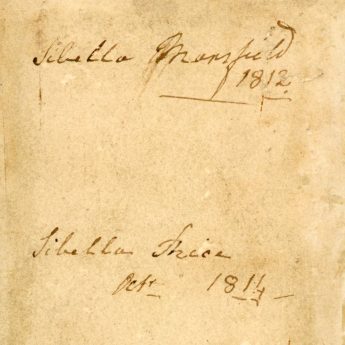 Sibella Mansfield
1812
Sibella Price
Octr 1814